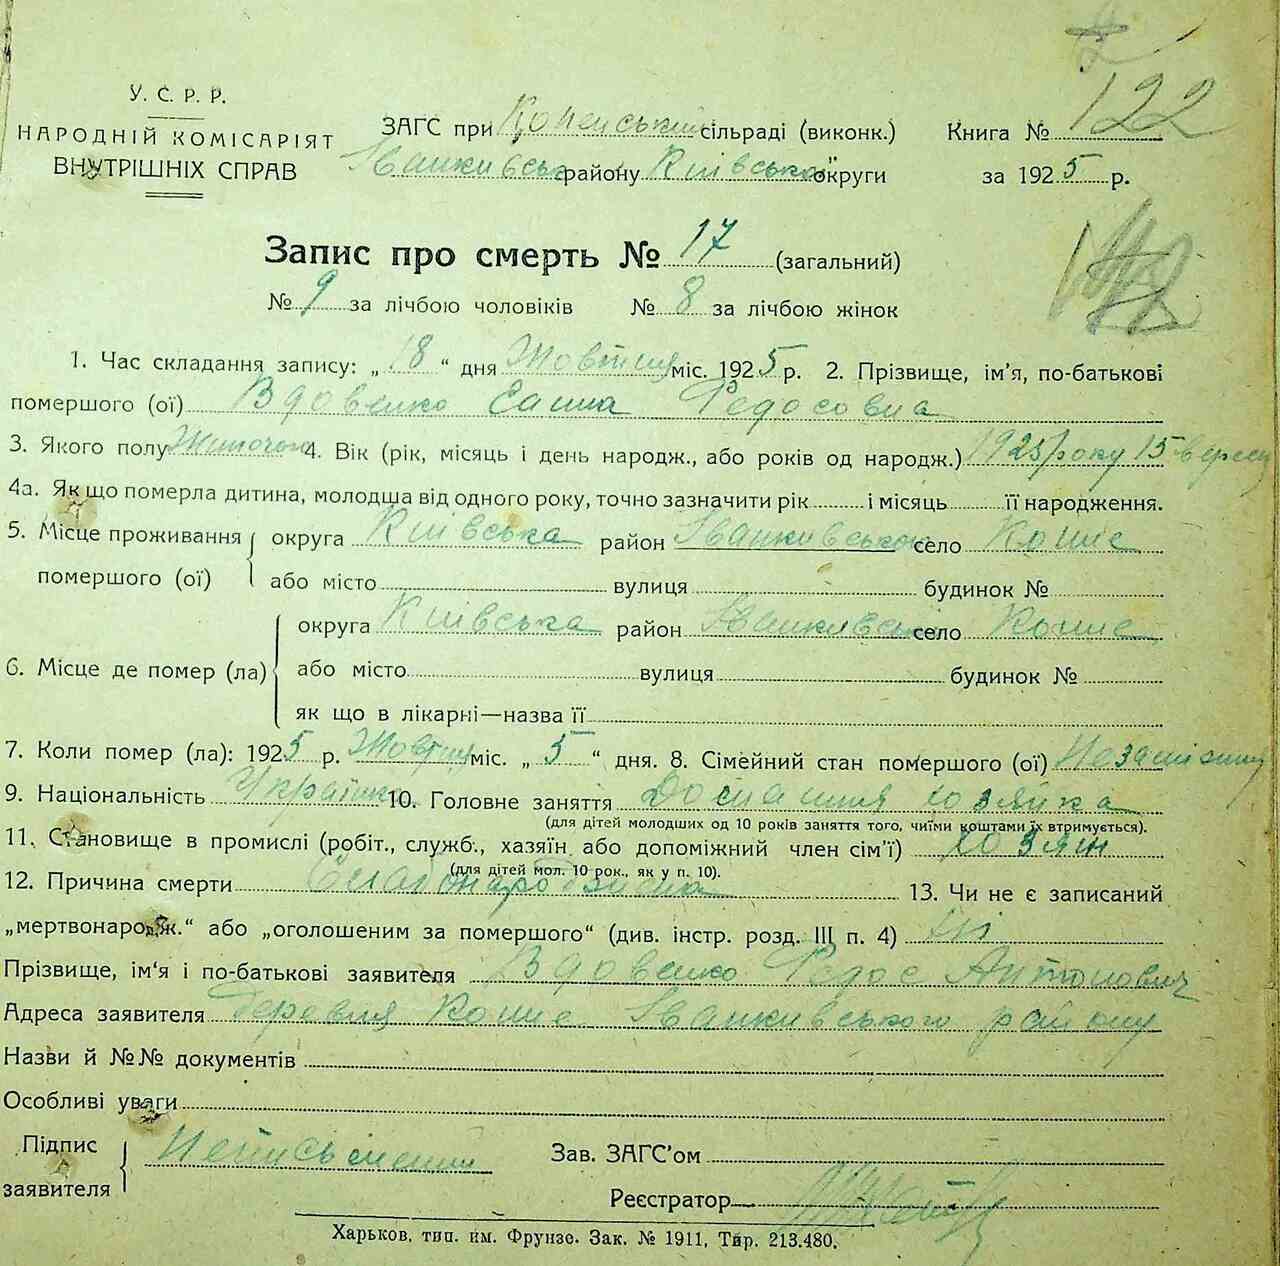 122
У. С. Р. Р.
НАРОДНІЙ КОМІСАРІЯТ
ВНУТРІШНІХ СПРАВ
ЗАГС при сільраді (виконк.)
Іванківсько району Київсько округи
Книга № 122
за 1925 р.
Запис про смерть № 17 (загальний)
№ 9 за лічбою чоловіків № 8 за лічбою жінок
1. Час складання запису: „18“ дня Жовтня міс. 1925 р. 2. Прізвище, ім'я, по-батькові
помершого (ої) Вдовенко Ганна Федосовна
3. Якого полу Жіночого 4. Вік (рік, місяць і день народж., або років од народж.) 1925 року 15 вересня
4а. Як що померла дитина, молодша від одного року, точно зазначити рік і місяць її народження.
5. Місце проживання помершого (ої) округа Київська район Іванківського село Копис
або місто вулиця будинок №
6. Місце де помер (ла) округа Київська район Іванківсько село Копис
або місто вулиця будинок №
як що в лікарні—назва її
7. Коли помер (ла): 1925 р. Жовтня міс. „5“ дня. 8. Сімейний стан помершого (ої) Незаміжня
9. Національність Українка 10. Головне заняття Домашня хозяйка
(для дітей молодших од 10 років заняття того, чиїми коштами їх втримується).
11. Становище в промислі (робіт., служб., хазяїн або допоміжний член сім'ї) хозяин
(для дітей мол. 10 рок., як у п. 10).
12. Причина смерти 13. Чи не є записаний
„мертвонародж.“ або „оголошеним за помершого“ (див. інстр. розд. III п. 4) Ні
Прізвище, ім'я і по-батькові заявителя Вдовенко Федос Антонович
Адреса заявителя деревня Копис Іванківського району
Назви й №№ документів
Особливі уваги
Підпис заявителя Неписьменний
Зав. ЗАГС'ом
Реєстратор
Харьков, тип. им. Фрунзе. Зак. № 1911, Тир. 213.480.